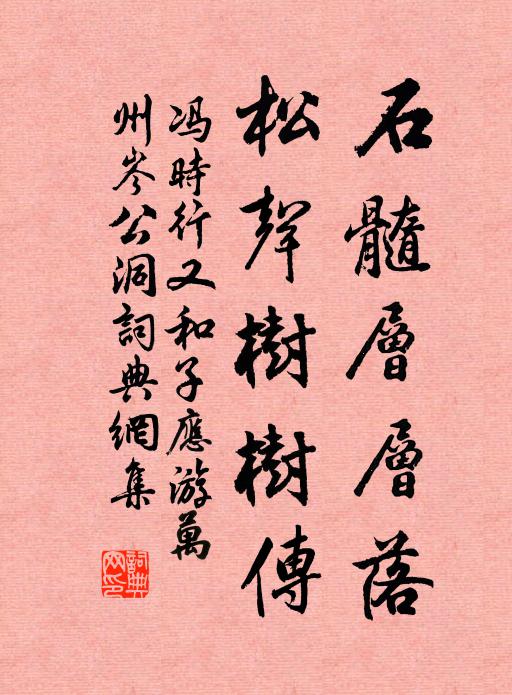 石髓層層落
松聲樹樹傳
馮時行又和子應游萬
州岑公洞詞典網集
詞典
网印